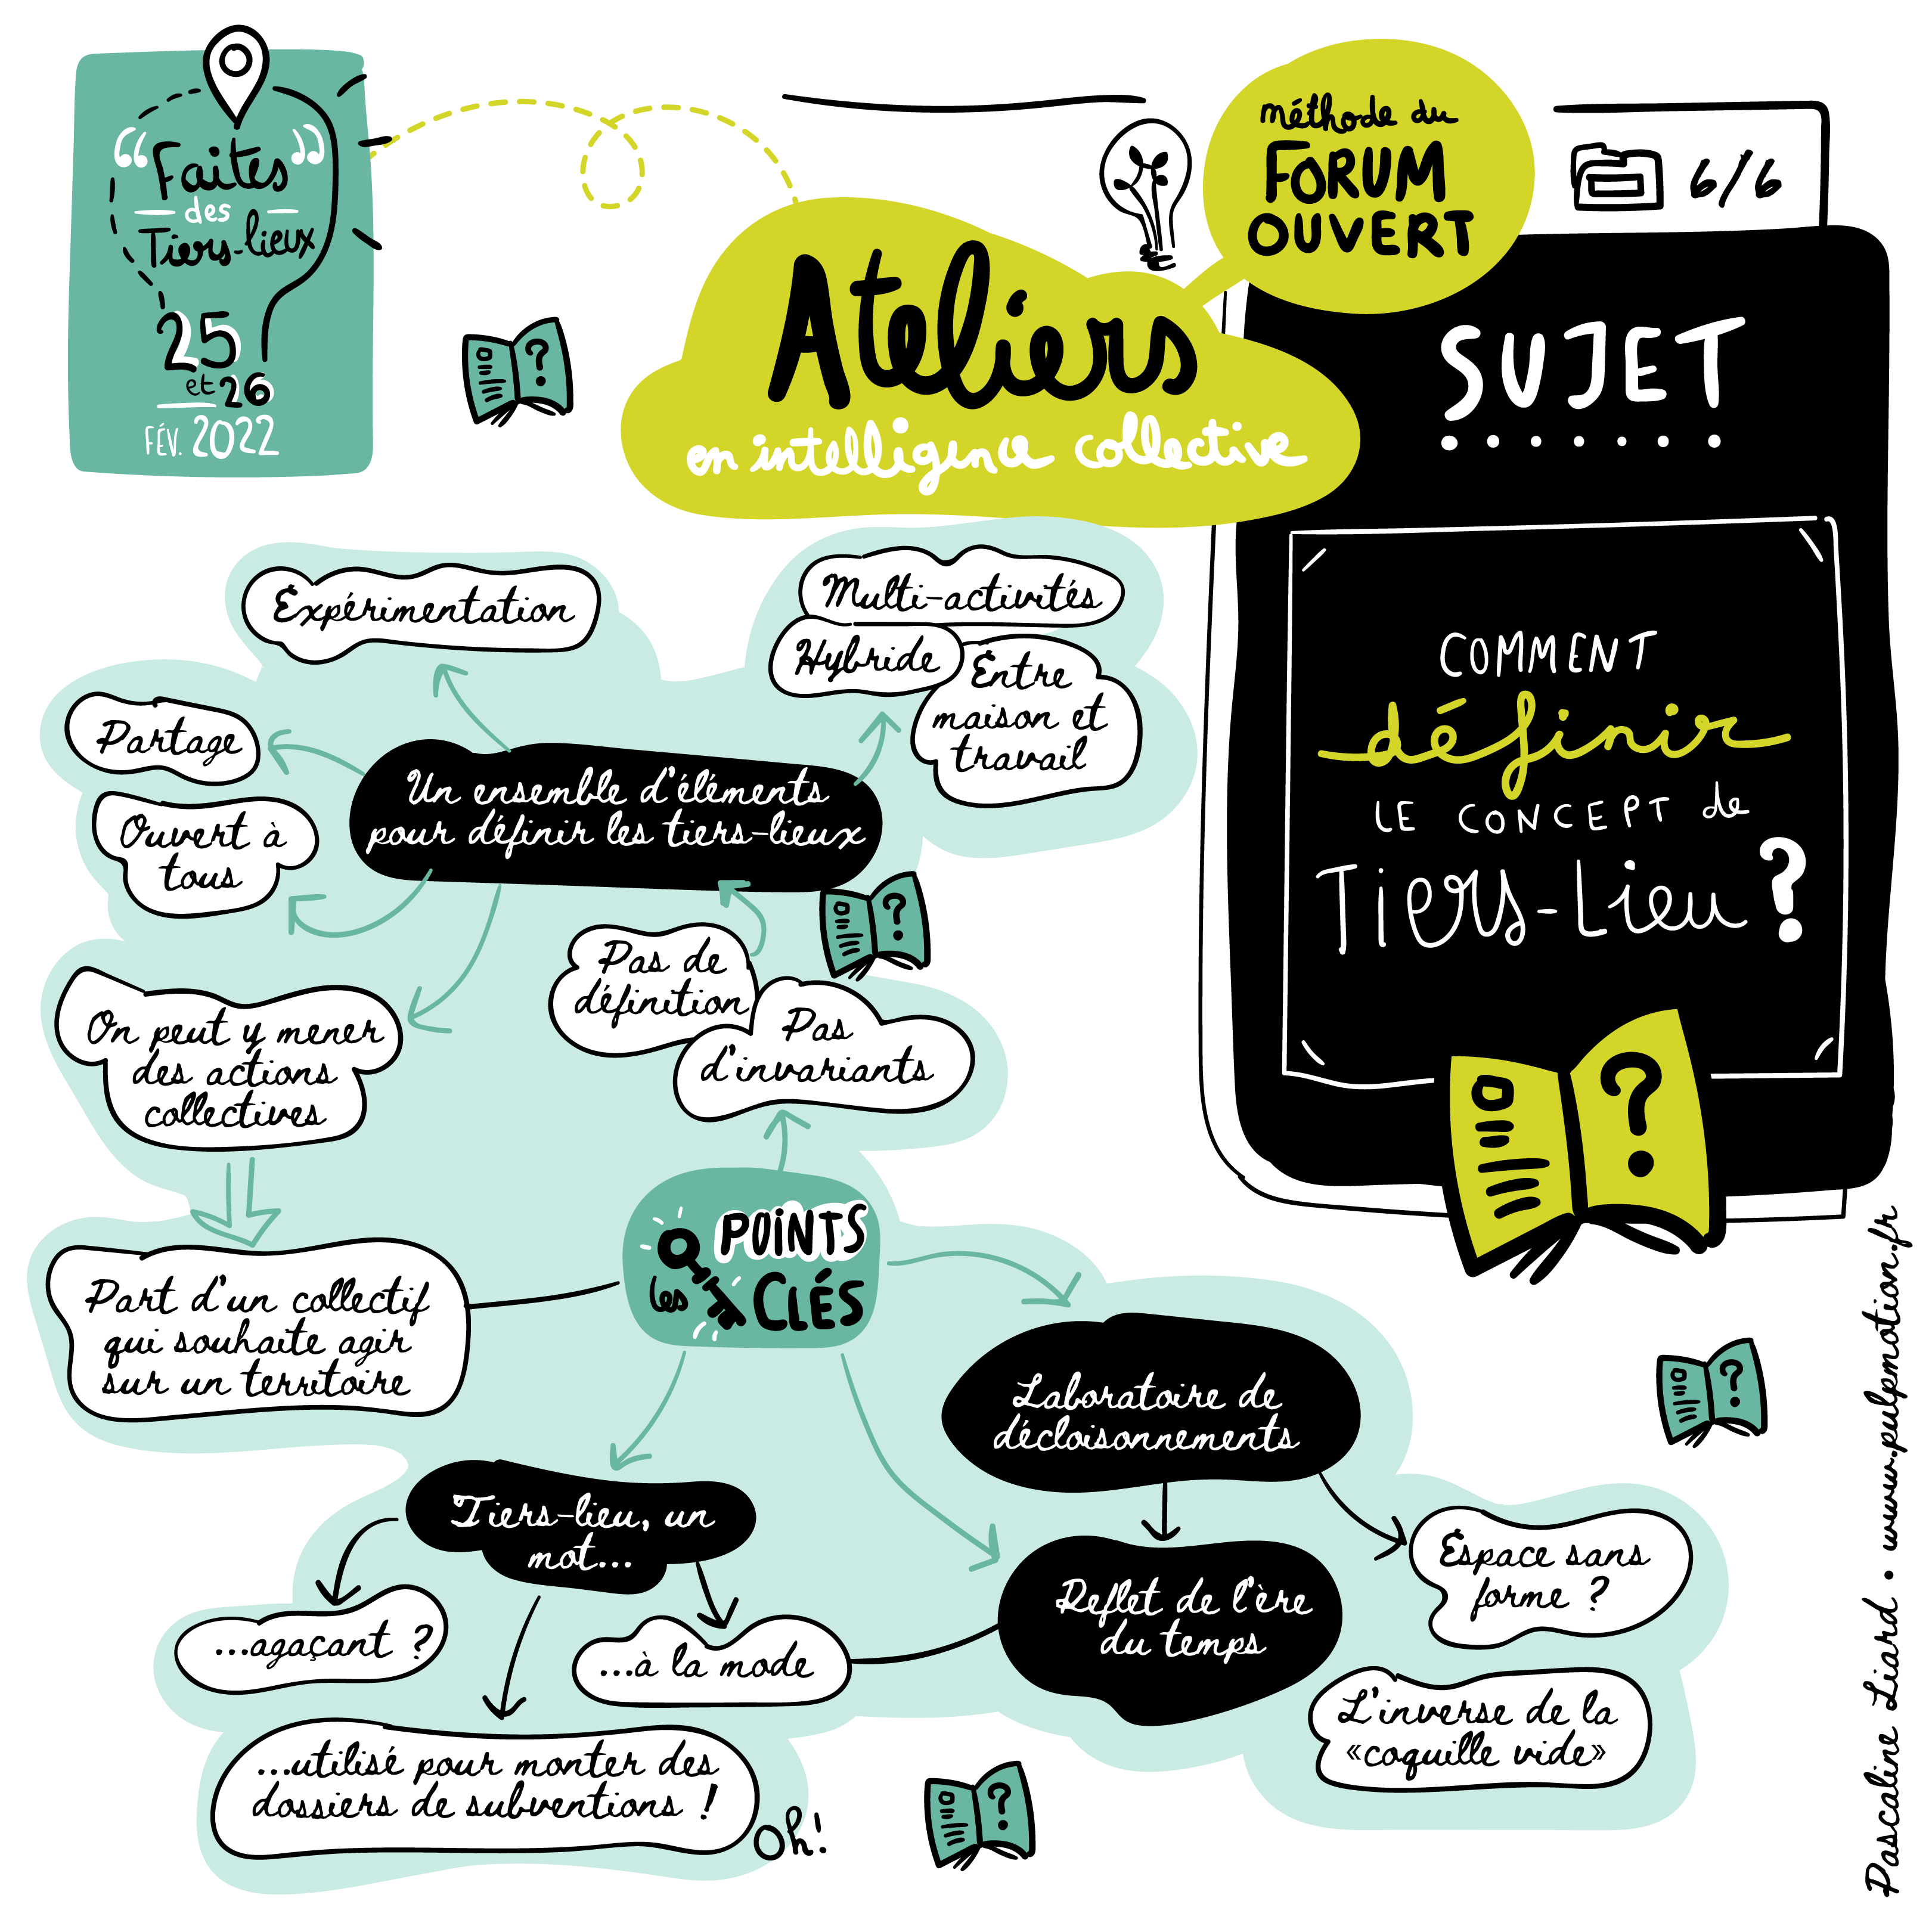 “Faites”
des
Tiers-lieux
25
et 26
FÉV. 2022
méthode du
FORUM
OUVERT
6/6
Ateliers
en intelligence collective
SUJET
COMMENT
définir
LE CONCEPT de
Tiers-Lieu ?
Expérimentation
Multi-activités
Hybride
Entre
maison et
travail
Partage
Ouvert à
tous
Un ensemble d'éléments
pour définir les tiers-lieux
?
Pas de
définition
Pas
d'invariants
On peut y mener
des actions
collectives
les POINTS
CLÉS
Part d'un collectif
qui souhaite agir
sur un territoire
Laboratoire de
décloisonnements
Tiers-lieu, un
mot...
Reflet de l'ère
du temps
Espace sans
forme ?
...agaçant ?
...à la mode
L'inverse de la
«coquille vide»
...utilisé pour monter des
dossiers de subventions !
Oh!
?
?
?
?
Pascaline Liard • www.pulpmotion.fr